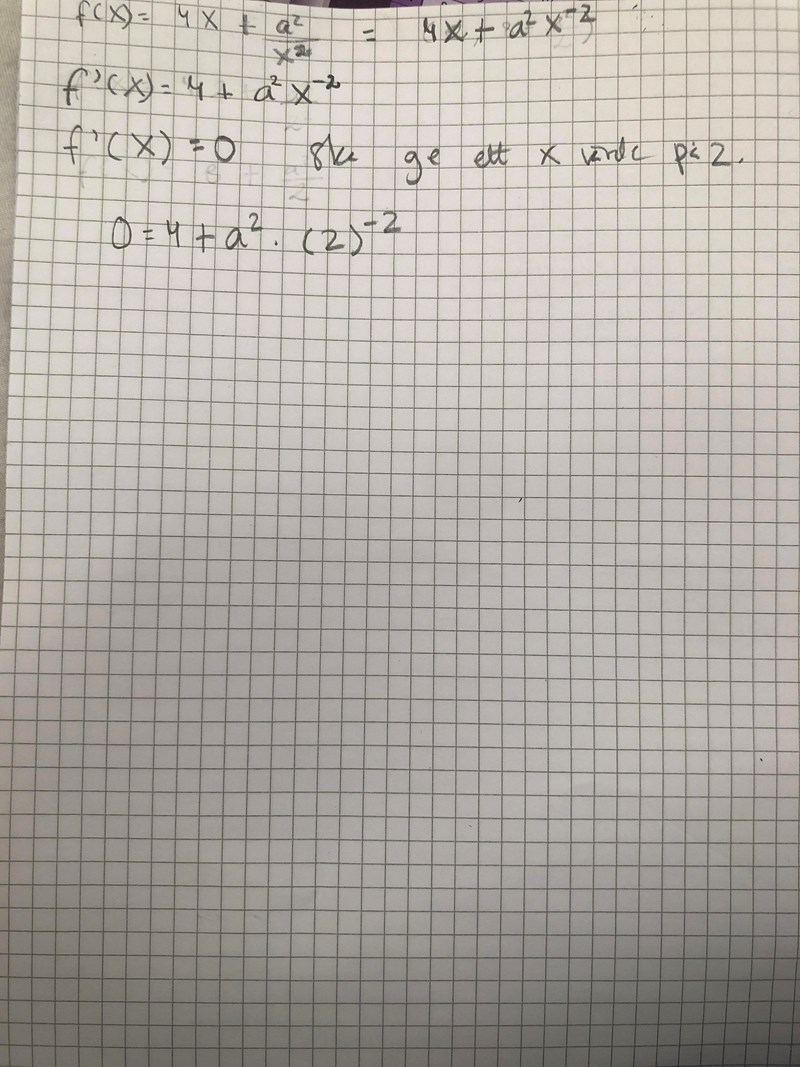 f(x) = 4x + a²/x² = 4x + a²x⁻²
f'(x) = 4 + a²x⁻²
f'(x) = 0 ska ge ett x värde på 2.
0 = 4 + a² · (2)⁻²